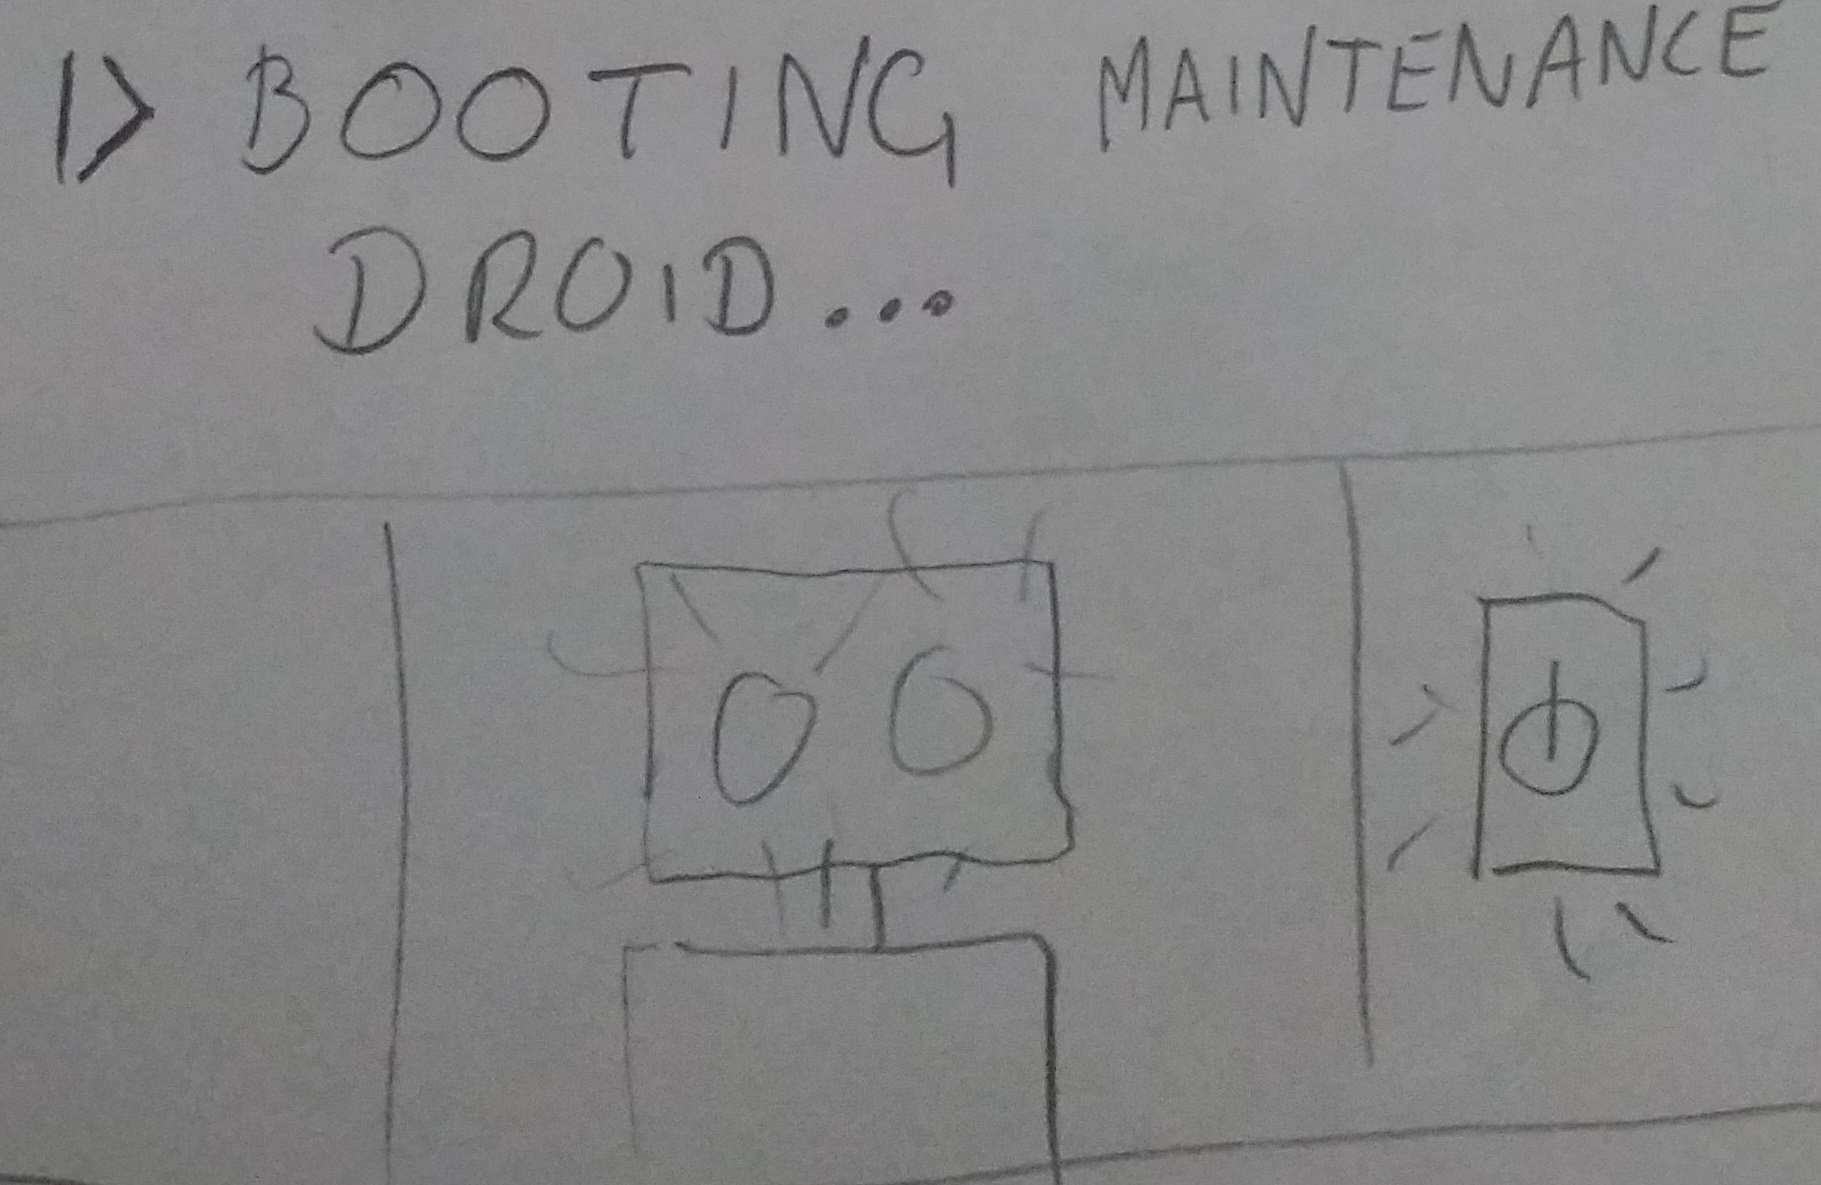 1> BOOTING MAINTENANCE
DROID...